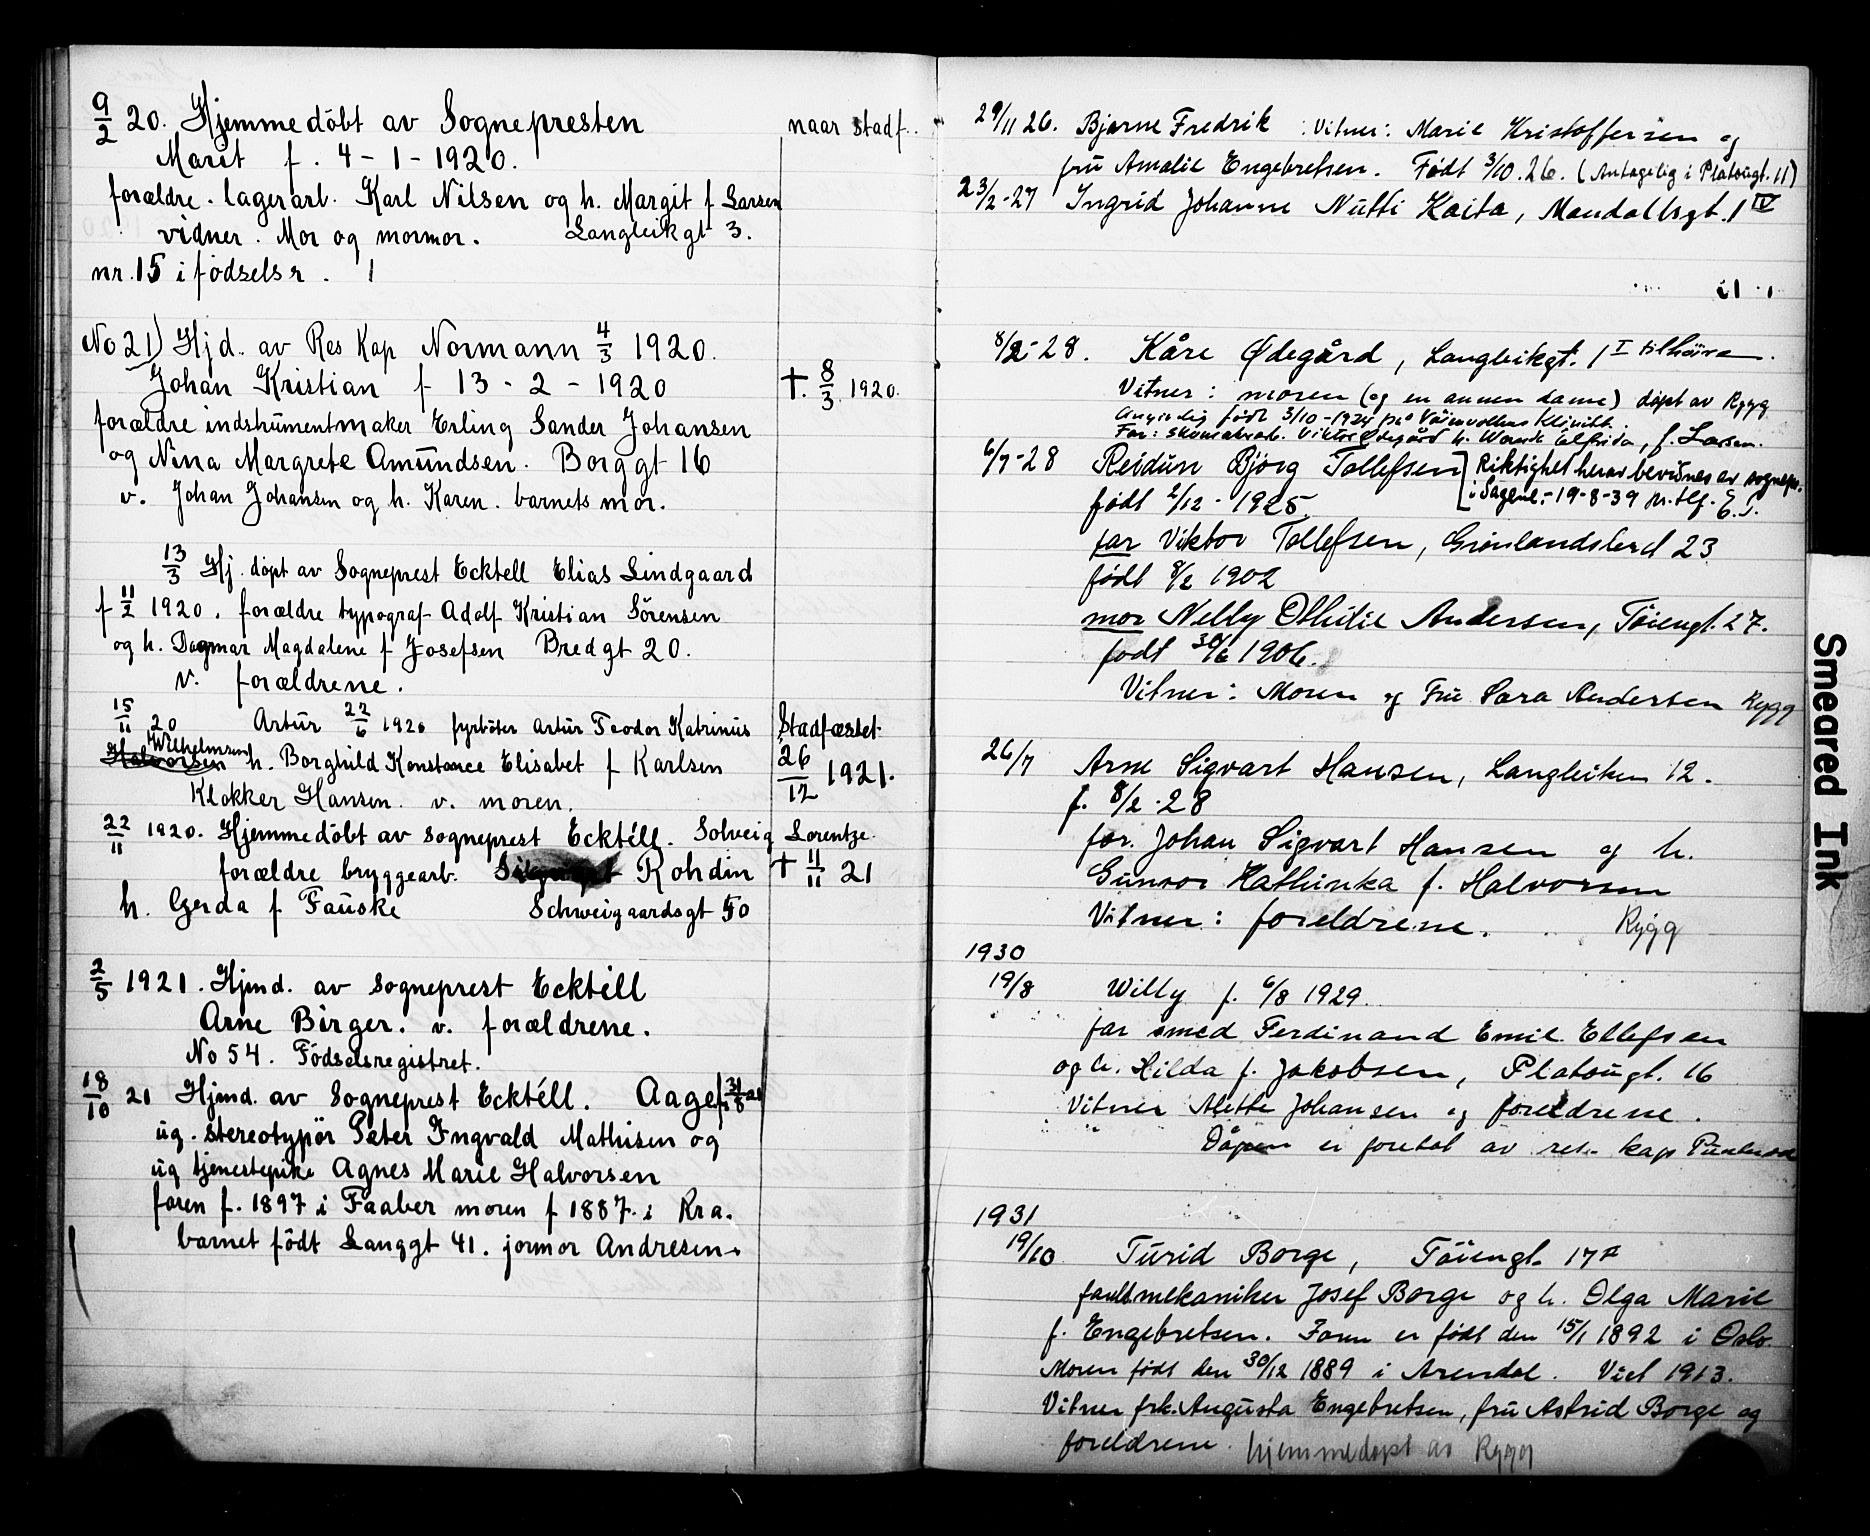 9/2 20. Hjemmedöbt av Sognepresten
naar stadf.
Marit f. 4-1-1920.
forældre. lagerarb. Karl Nilsen og h. Margit f Larsen
vidner. Mor og mormor. Langleikgt 3.
nr. 15 i fødselsr. 1
No 21) Hjd. av Res Kap Normann 4/3 1920.
Johan Kristian f 13-2-1920
†. 8/3 1920.
forældre indstrumentmaker Erling Sander Johansen
og Nina Margrete Amundsen. Borggt 16
v. Johan Johansen og h. Karen. barnets mor.
13/3 Hj. döpt av Sogneprest Ecktell Elias Lindgaard
f 11/2 1920. forældre typograf Adolf Kristian Sörensen
og h. Dagmar Magdalene f Josefsen Bredgt 20.
v. forældrene.
15/11 20 Artur 22/6 1920 fyrböter Artur Teodor Katrinus
Stadfæstet
Halvorsen Wilhelmsen h. Borghild Konstance Elisabet f Karlsen
26/12 1921.
Klokker Hansen. v. moren.
22/11 1920. Hjemmedöbt av sogneprest Ecktéll. Solveig Lorentze.
forældre bryggearb. Rohdin
† 11/11 21
h. Gerda f Fauske Schweigaardsgt 50
2/5 1921. Hjmd. av Sogneprest Ecktéll
Arne Birger. v. forældrene.
No 54. Födselsregistret.
18/10 21 Hjmd. av Sogneprest Ecktéll. Aage f 31/8 21
ug. stereotypör Peter Ingvald Mathisen og
ug tjenestepike Agnes Marie Halvorsen
faren f. 1897 i Faaber moren f 1887. i Kra.
barnet födt Langgt 41. jormor Andresen.
29/11 26. Bjarne Fredrik Vitner: Marie Kristoffersen og
fru Amalie Engebretsen. Født 3/10.26. (Antagelig i Platougt. 11)
23/2-27 Ingrid Johanne Nutti Kaita, Mandallsgt. 1 IV
8/2-28. Kåre Ødegård, Langleikgt. 1 I tilhöire.
Vitner: moren (og en annen dame) döpt av Rygg
Angivelig født 3/10-1924 på Klinikk.
Far: skomakerarb. Viktor Ødegård h. f. Larsen.
6/7-28 Reidun Bjørg Tollefsen [Riktighet herav bevidnes av sognepr.
i Sagene.- 19-8-39 pr. tlf. E.S.
født 2/12-1925.
far Viktor Tollefsen, Grønlandsleret 23
født 8/2 1902
mor Nelly Othilie Andersen, Töiengt. 27.
født 30/6 1906.
Vitner: Moren og Fru Sara Andersen Rygg
26/7 Arne Sigvart Hansen, Langleiken 12.
f. 8/2.28
for. Johan Sigvart Hansen og h.
Gunvor Kathinka f. Halvorsen
Vitner: foreldrene. Rygg
1930
19/8 Willy f. 6/8 1929.
far smed Ferdinand Emil Ellefsen
og h. Hilda f. Jakobsen, Platougt. 16
Vitner Alette Johansen og foreldrene.
Dåpen er foretat av res. kap
1931
19/10 Turid Borge, Töiengt. 17 A
mekaniker Josef Borge og h. Olga Marie
f. Engebretsen. Faren er født den 15/1 1892 i Oslo.
Moren født den 30/12 1889 i Arendal. Viet 1913.
Vitner frk. Augusta Engebretsen, fru Astrid Borge og
foreldrene. hjemmedøpt av Rygg
Smeared Ink